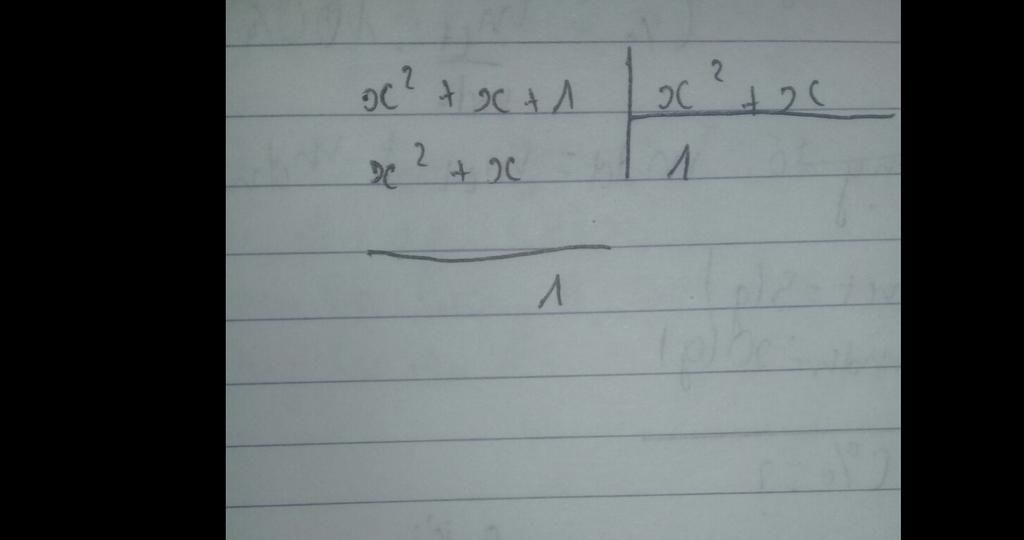 x² + x + 1 | x² + x
x² + x | 1
1